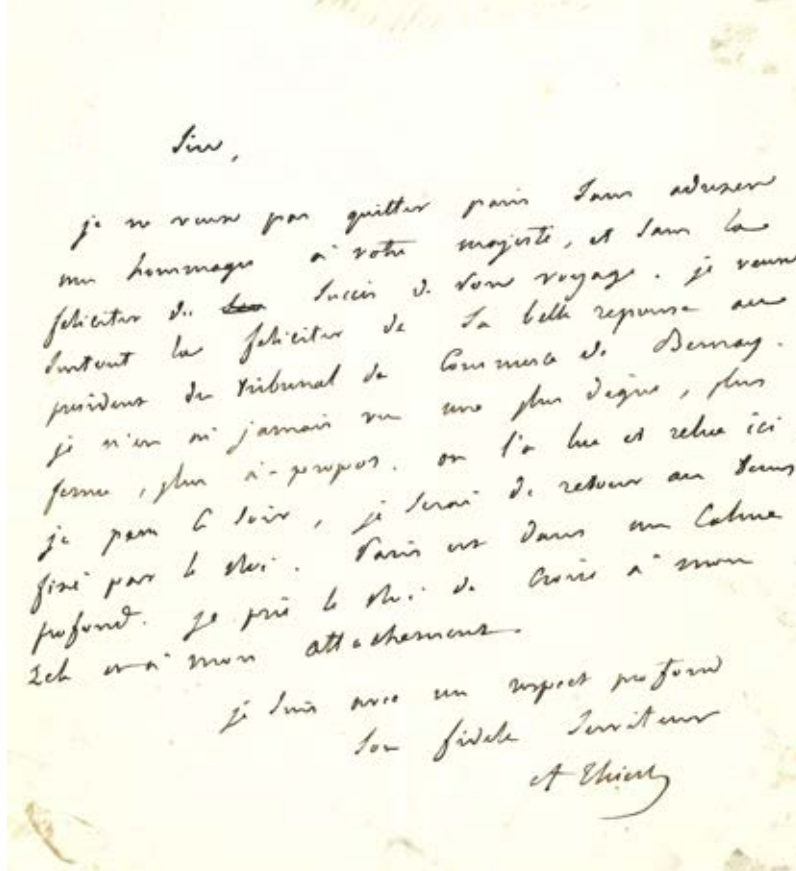 Sire,
je ne veux pas quitter paris sans adresser
mes hommages à votre majesté, et sans la
feliciter du succès de son voyage. je veux
surtout la feliciter de sa belle reponse au
president du tribunal de Commerce de Bernay.
je n'en ai jamais vu une plus digne, plus
ferme, plus à-propos. on l'a lue et relue ici
je pars ce soir, je serai de retour au tems
fixé par le Roi. Paris est dans un Calme
profond. je prie le Roi de croire à mon
zele et à mon attachement.
je suis avec un respect profond
son fidele serviteur
A Thiers